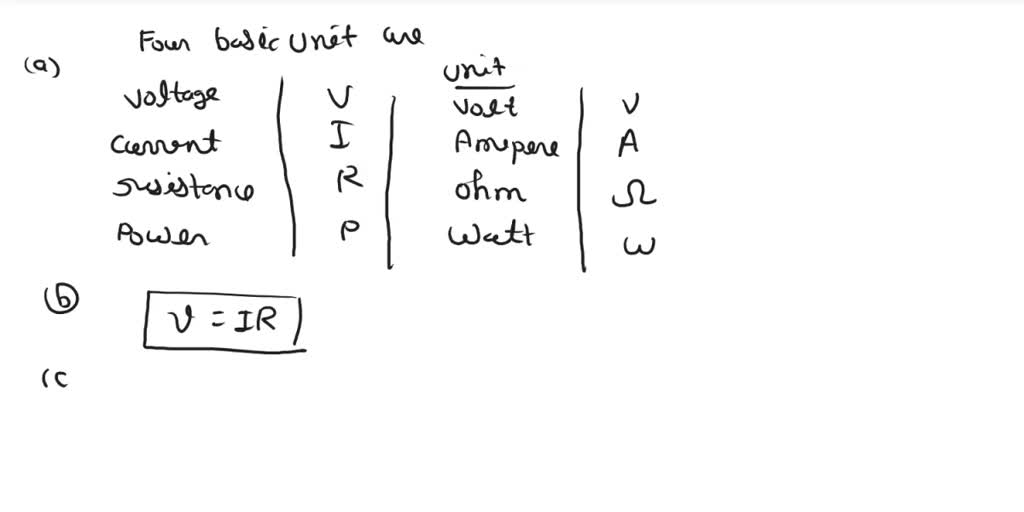 Four basic unit are
(a) unit
voltage V volt V
current I Ampere A
resistance R ohm Ω
Power P Watt W
(b) V = IR
(c